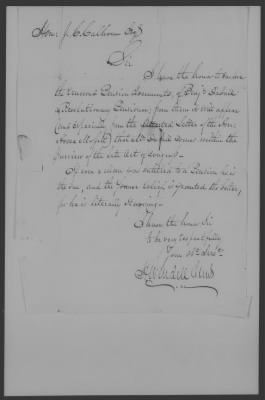 Hon: J. C. Calhoun Esqr
Sir
I have the honor to enclose
the renewed Pension documents, of Benj.
a Revolutionary Pensioner; from them it will appear
(and especially from the Letter of the Hon:
) that Mr. comes within the
purview of the late Act of Congress.
If ever a man was entitled to a Pension he is
the one, and the sooner relief is granted the better,
for he is literally starving.
I have the honor Sir
to be very respectfully
Your Obt. Servt.